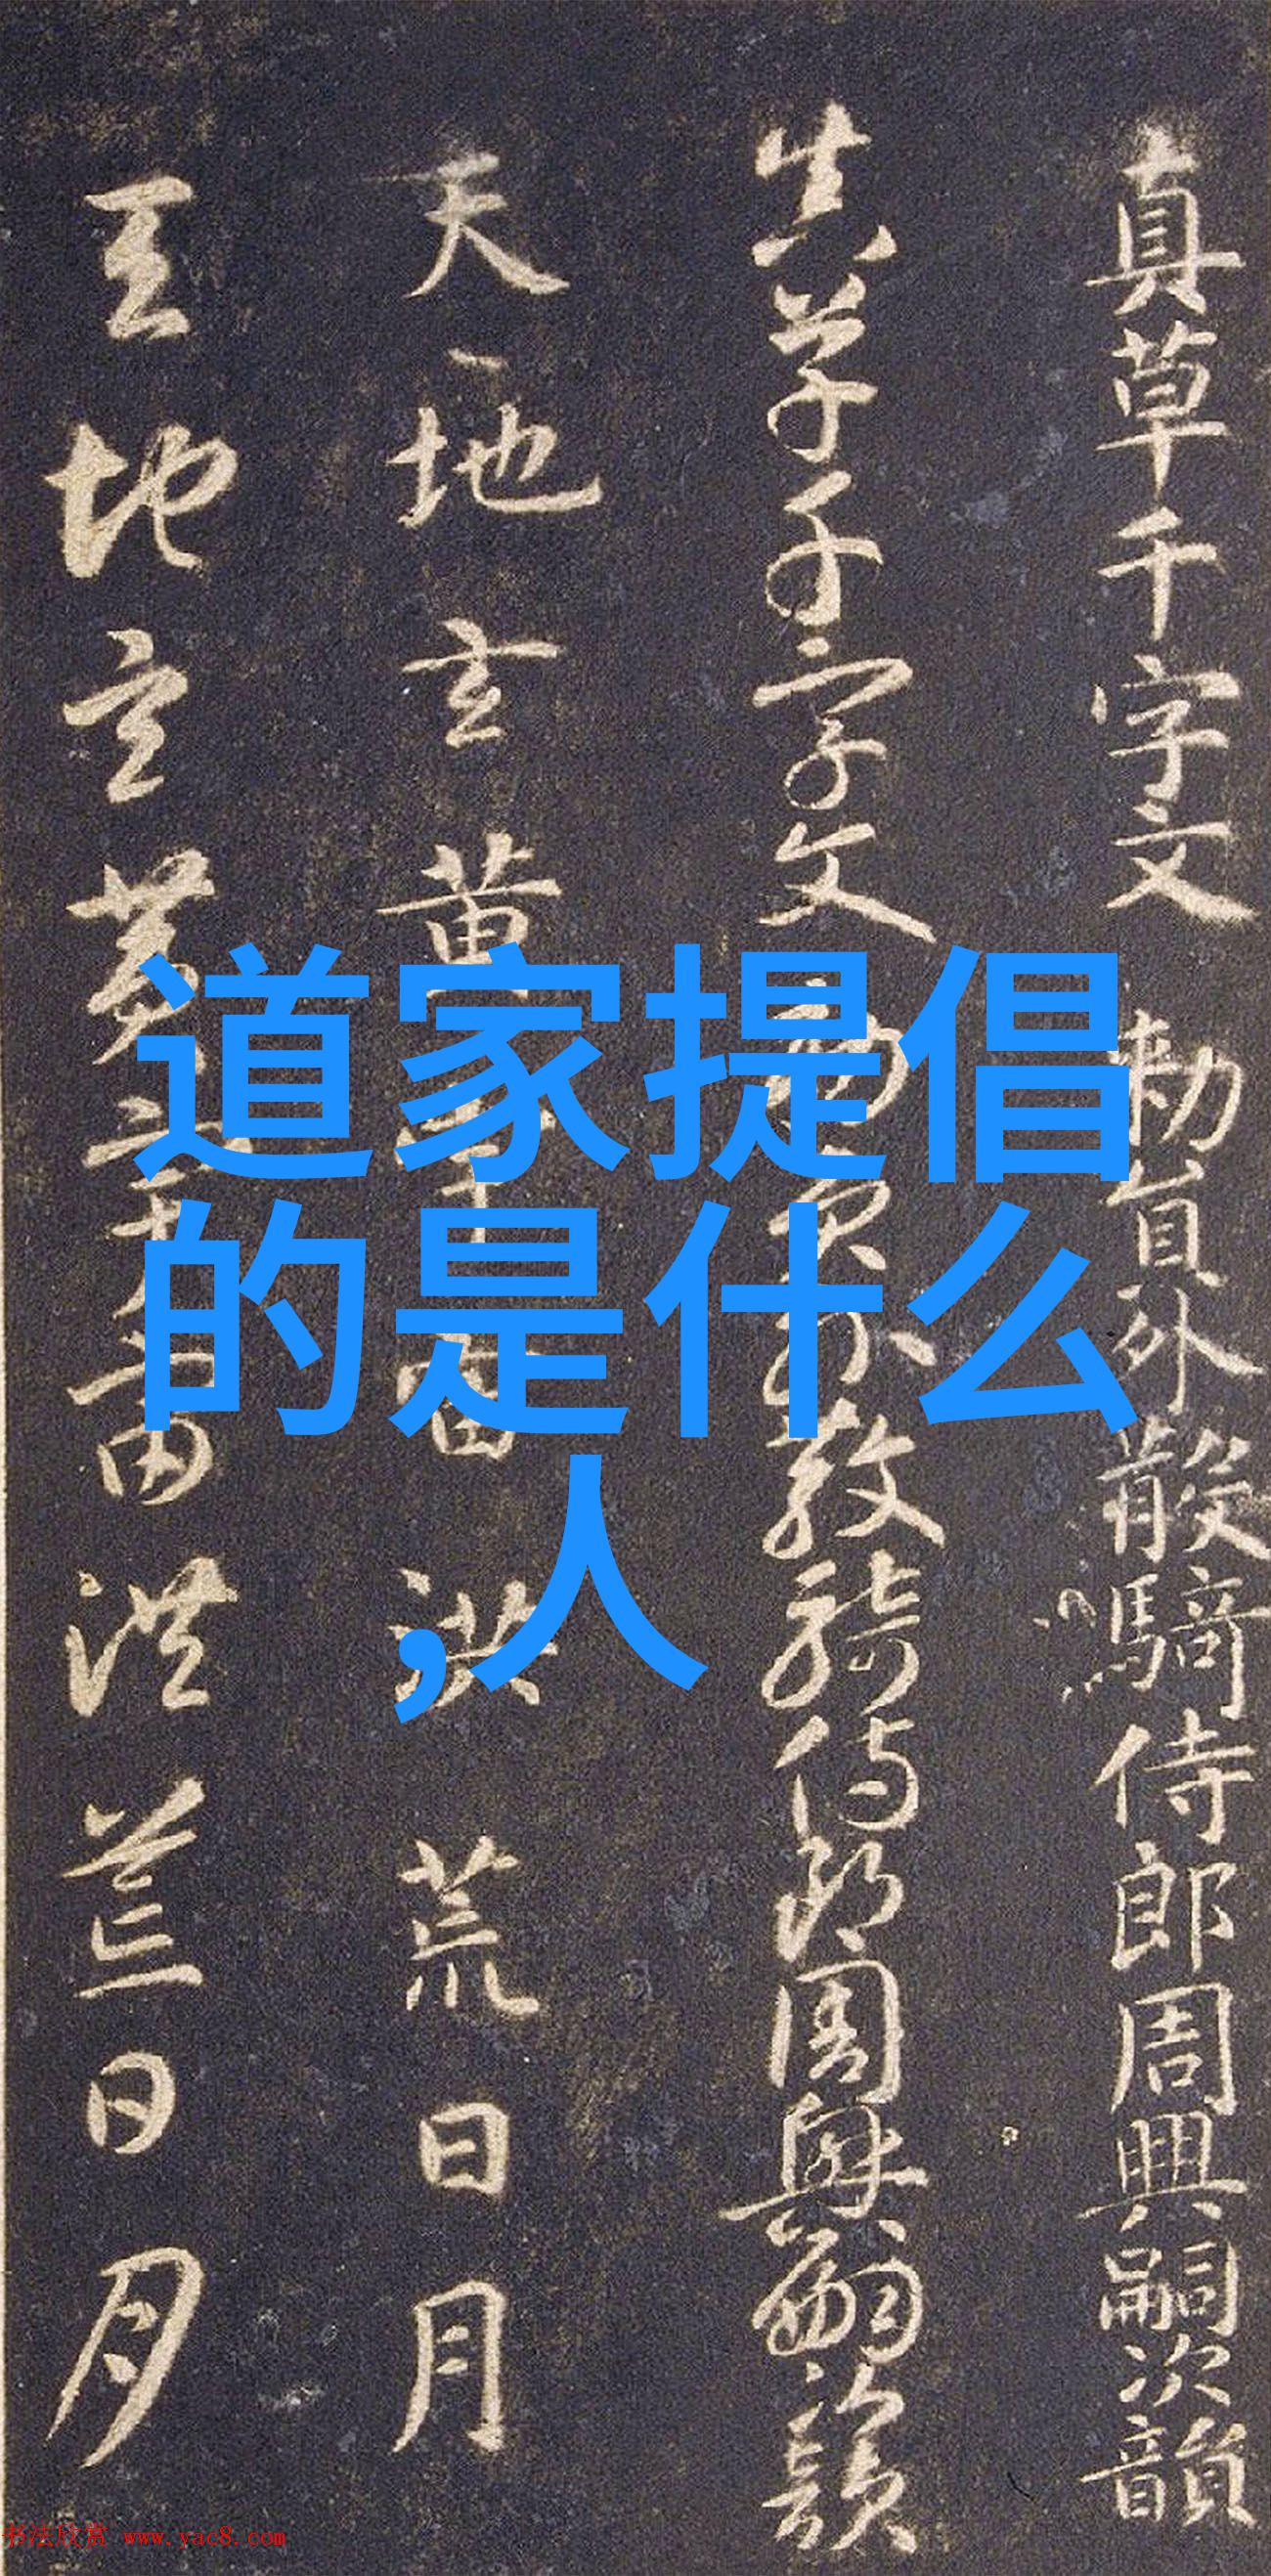 真草千字文 勑員外散騎侍郎周興嗣次韻
真草千字文 勑員外散騎侍郎周興嗣次韻
天地玄黄宇宙洪荒日月
天地玄黄宇宙洪荒日月
道家提倡
的是什么
,人
书法欣赏 www.yac8.com